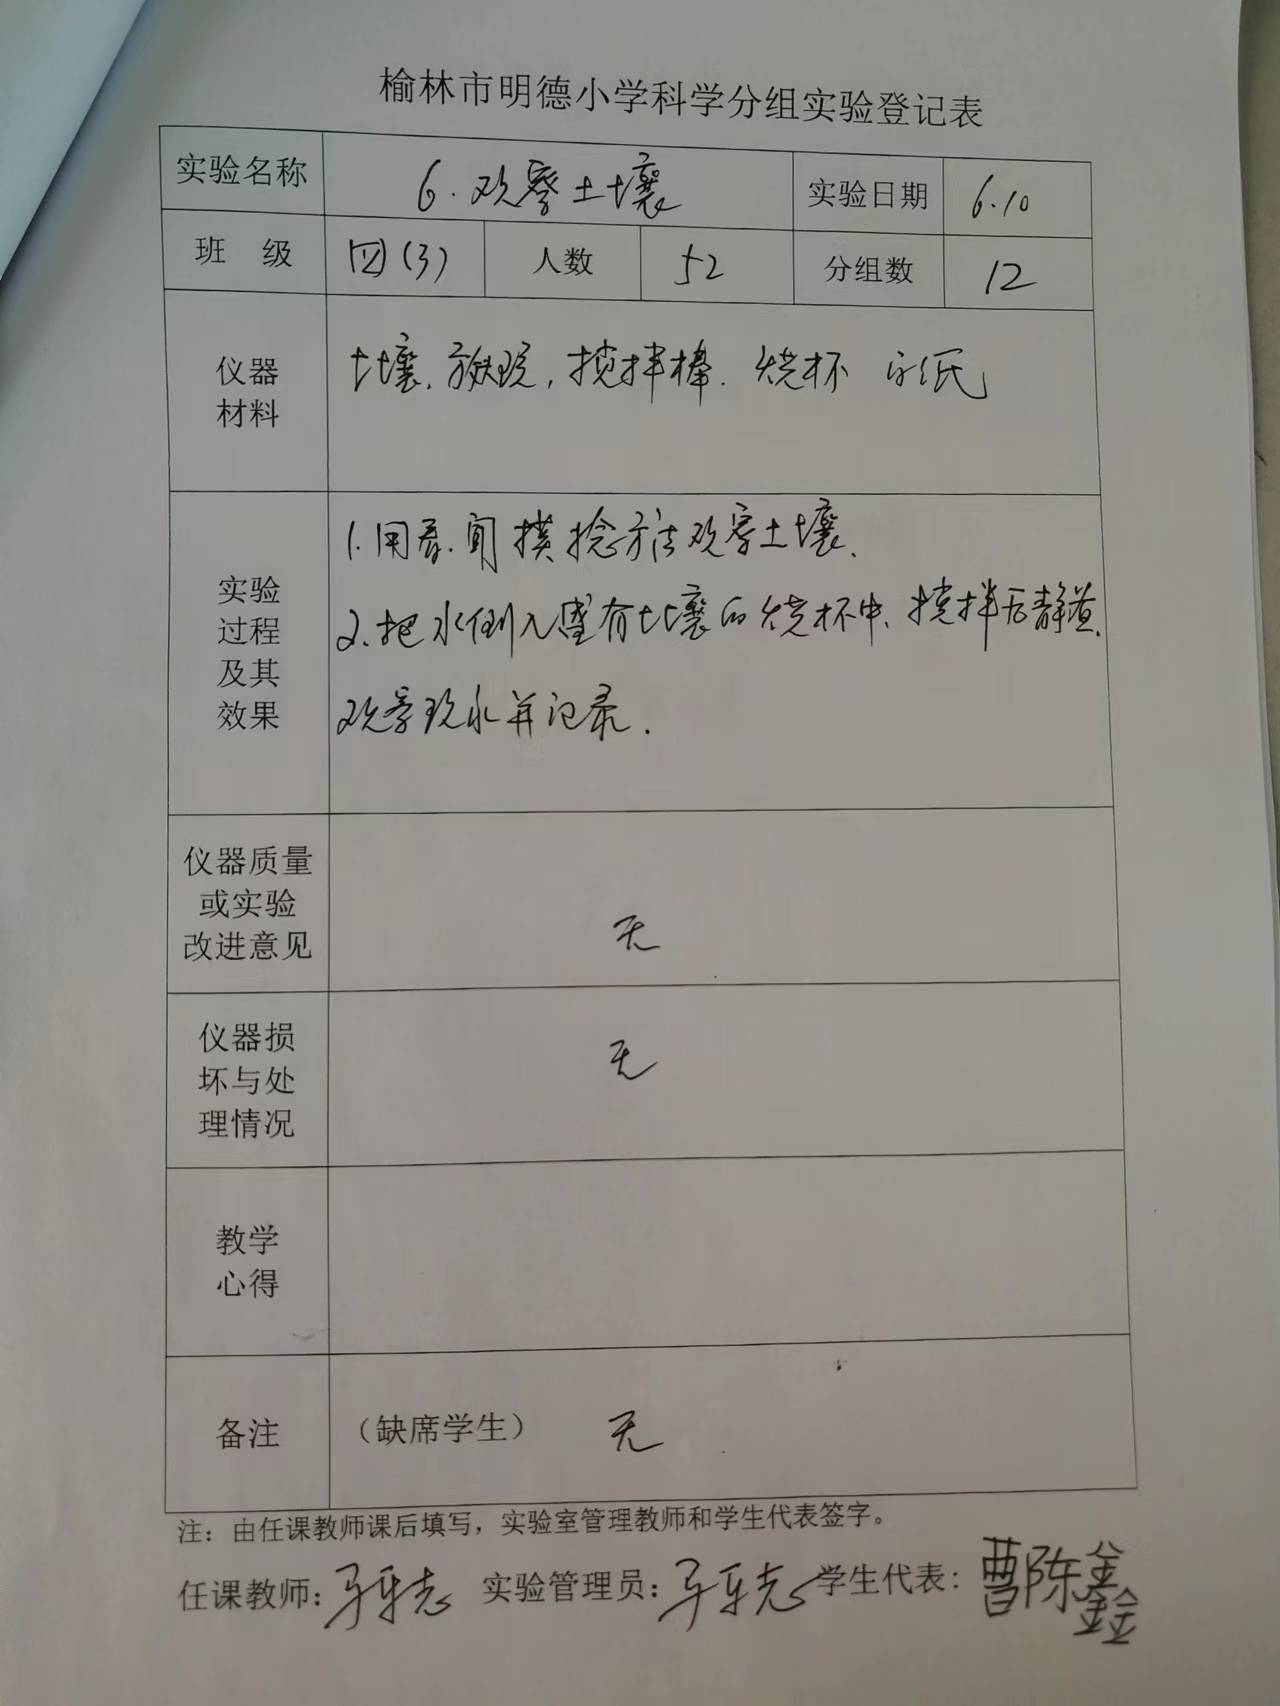 榆林市明德小学科学分组实验登记表
实验名称 6.观察土壤 实验日期 6.10
班 级 四(3) 人数 52 分组数 12
仪器
材料
土壤,放大镜,搅拌棒.烧杯 白纸
实验
过程
及其
效果
1.用看.闻 摸 捻方法观察土壤.
2.把水倒入盛有土壤的烧杯中,搅拌后静置.
观察现 并记录.
仪器质量
或实验
改进意见
无
仪器损
坏与处
理情况
无
教学
心得
备注 (缺席学生) 无
注:由任课教师课后填写,实验室管理教师和学生代表签字。
任课教师: 实验管理员: 学生代表:曹陈鑫